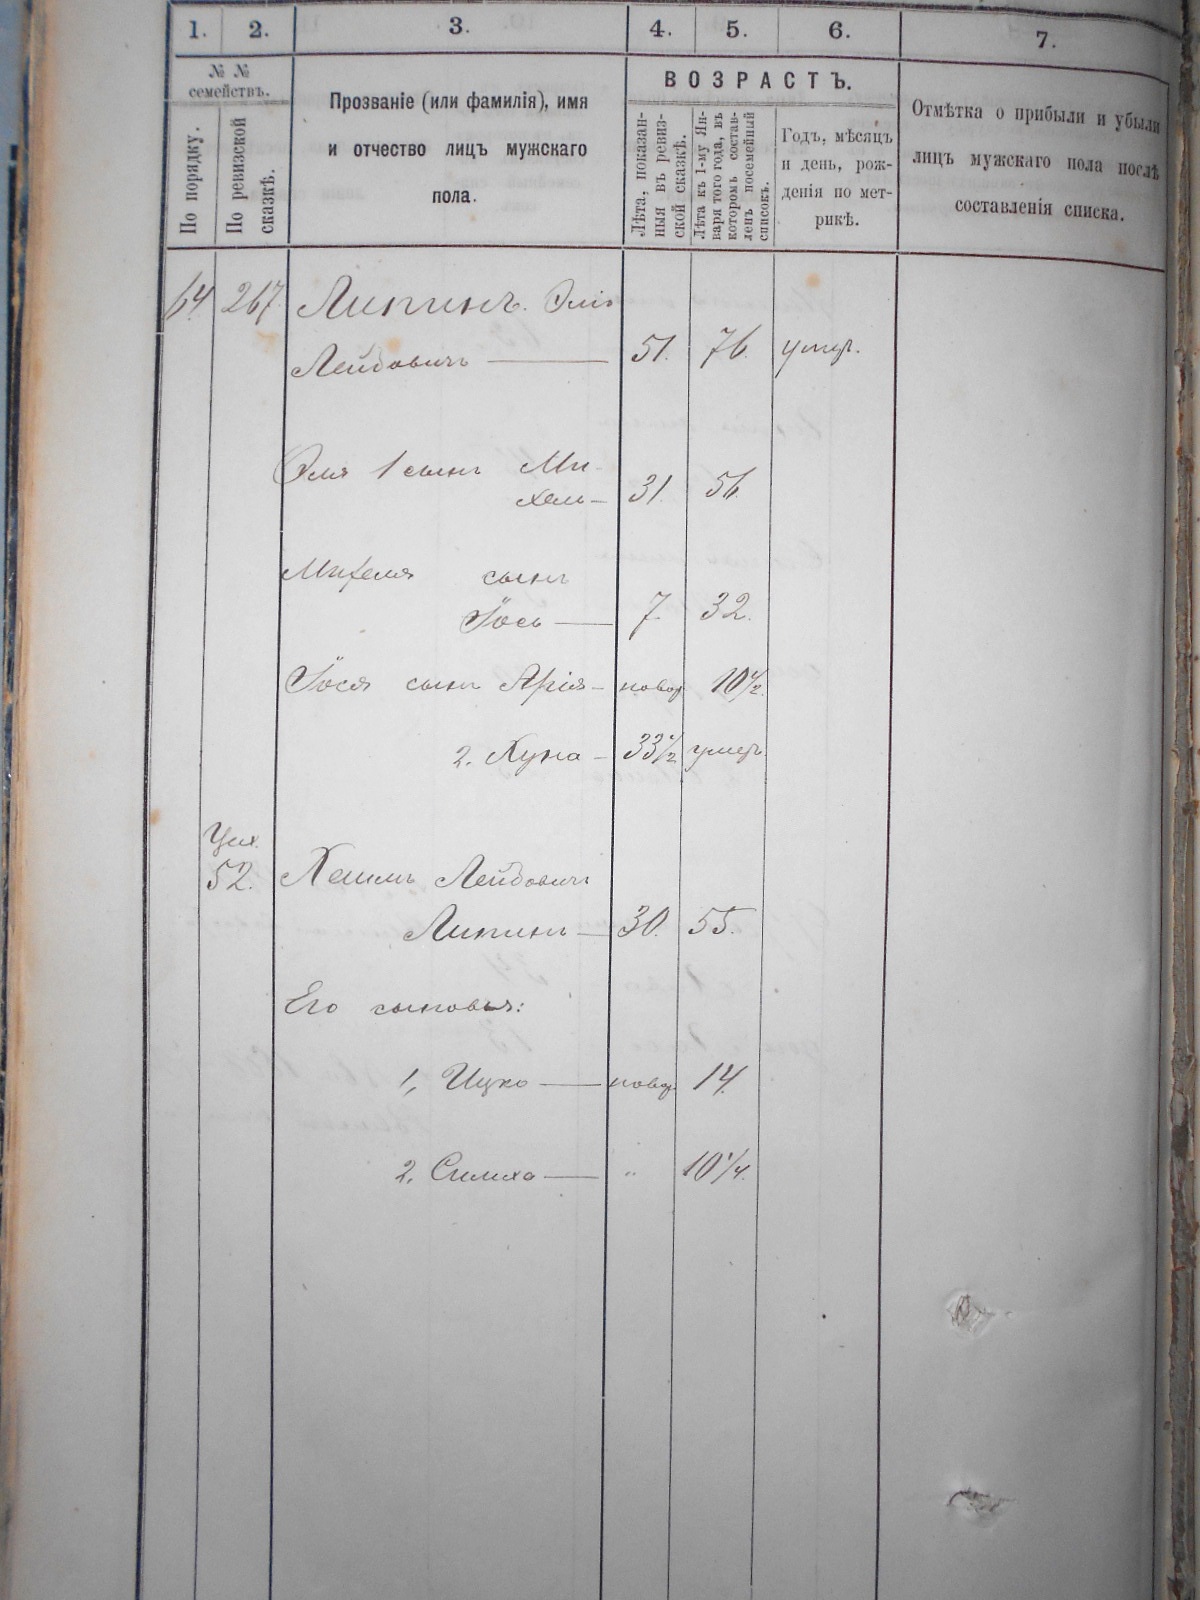 1. 2. 3. 4. 5. 6. 7.
№ №
семействъ.
По порядку.
По ревизской
сказкѣ.
Прозваніе (или фамилія), имя
и отчество лицъ мужскаго
пола.
ВОЗРАСТЪ.
Лѣта, показан-
ныя въ ревиз-
ской сказкѣ.
Лѣта къ 1-му Ян-
варя того года, въ
которомъ состав-
ленъ посемейный
списокъ.
Годъ, мѣсяцъ
и день, рож-
денія по мет-
рикѣ.
Отмѣтка о прибыли и убыли
лицъ мужскаго пола послѣ
составленія списка.
64 267. Липинъ. Эліо
Лейбовичъ — 51. 76. умер.
Эля 1 сынъ Ми-
хель — 31. 56.
Михеля сынъ
Іось — 7. 32.
Іося сынъ Арія — новор 10 1/2.
2. Хуна — 33 1/2 умеръ.
52. Хешель Лейбовичъ
Липинъ — 30. 55.
Его сыновья:
1, Ицко — новор 14.
2, Симха — " 10 1/4.